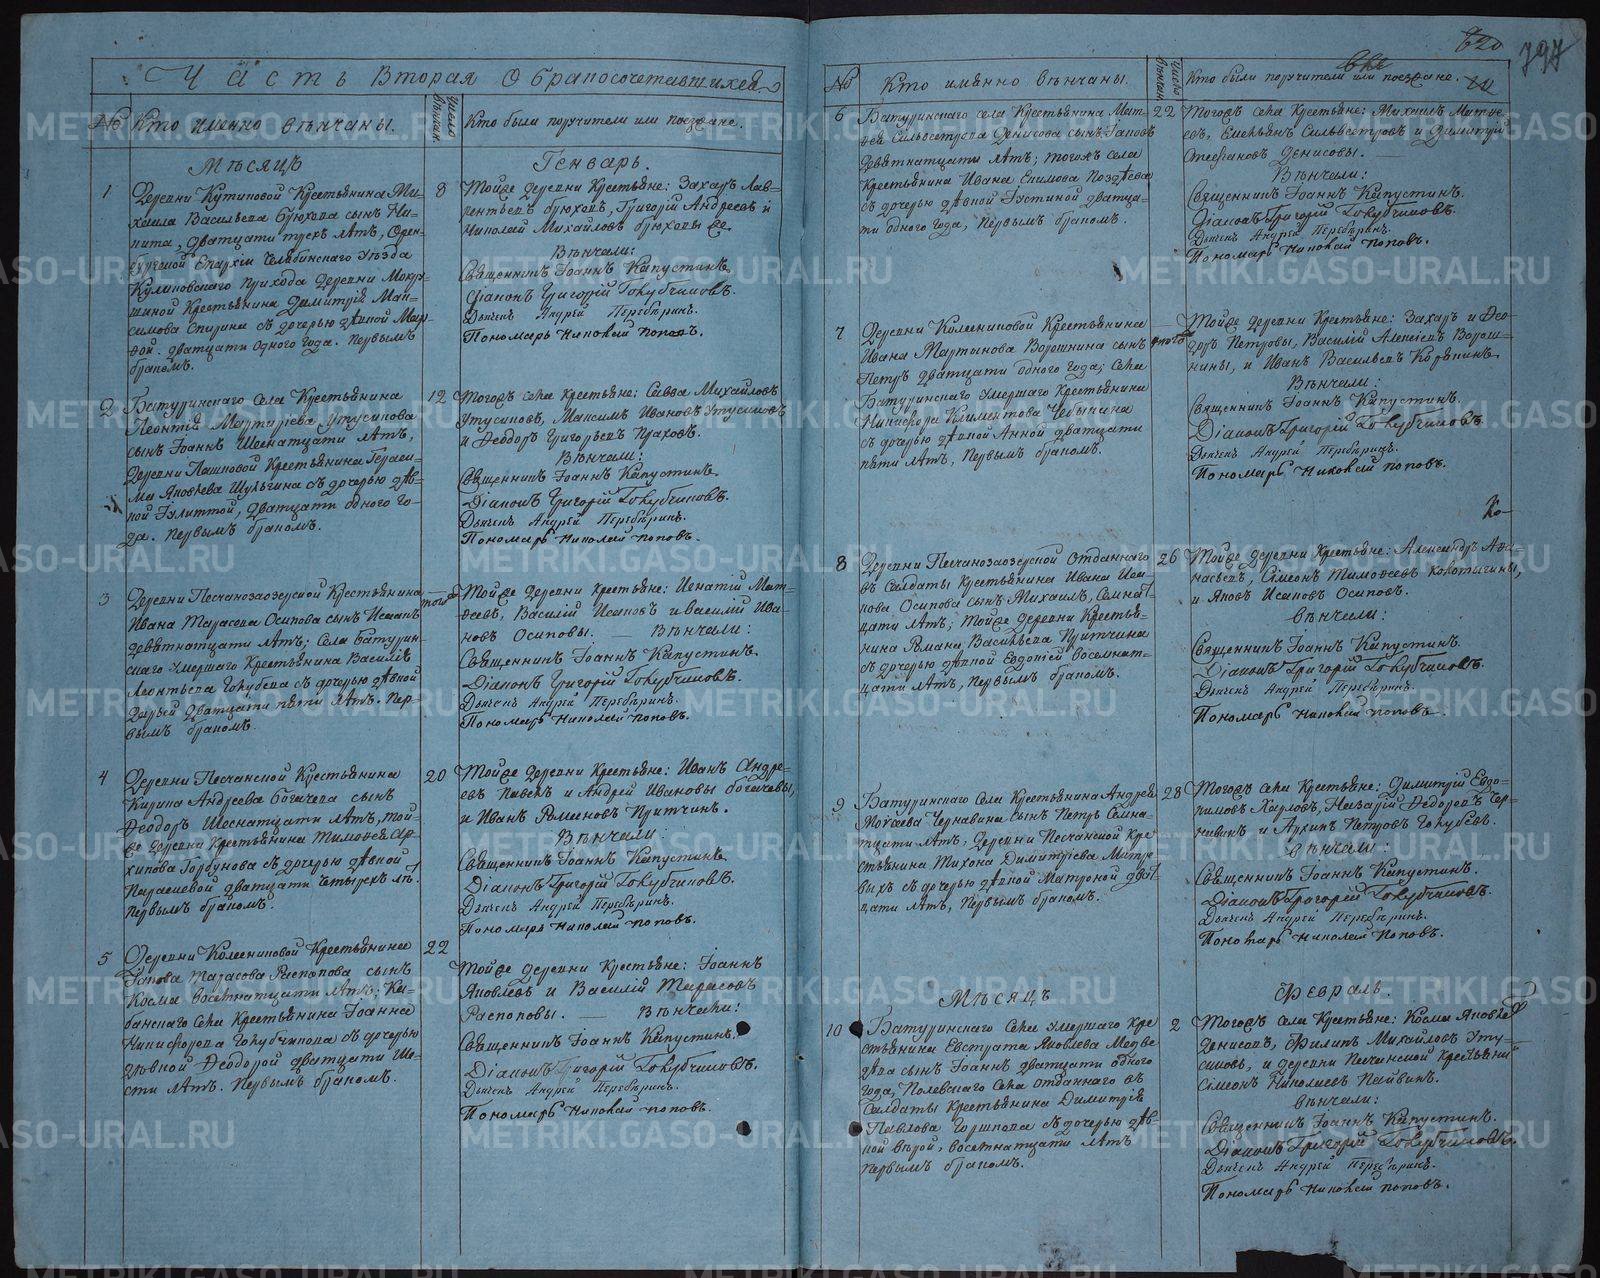 Часть Вторая О бракосочетавшихся
№ Кто именно вѣнчаны. Число вѣнчан. Кто были поручители или поезжане.
Мѣсяцъ Генварь.
1
Деревни Кутиковой Крестьянина Ми-
хаила Васильева Брюхова сынъ Ни-
кита, дватцати трехъ лѣтъ, Орен-
бургской Епархіи Челябинскаго Уѣзда
Куликовскаго Прихода деревни
Крестьянина Димитрія Мак-
симова Спирина съ дочерью дѣвкой Мар-
дватцати одного года. Первымъ
бракомъ.
8
Тойже деревни Крестьяне: Захаръ Лав-
рентьевъ Брюховъ, Григорій Андреевъ и
Николай Михайловъ Брюховы же.
Вѣнчали:
Священникъ Іоаннъ Капустинъ.
Діаконъ Григорій Голубчиковъ.
Дьячекъ Андрей
Пономарь Николай Поповъ.
2
Батуринскаго Села Крестьянина
Леонтія
сынъ Іоаннъ Шеснатцати лѣтъ,
Деревни Пашковой Крестьянина Гераси-
ма Яковлева Шульгина съ дочерью дѣв-
кой Іулиттой, дватцати одного го-
да. Первымъ бракомъ.
12
Тогожъ села Крестьяне: Савва Михайловъ
Максимъ Ивановъ
и Ѳеодоръ Григорьевъ
Вѣнчали:
Священникъ Іоаннъ Капустинъ.
Діаконъ Григорій Голубчиковъ.
Дьячекъ Андрей
Пономарь Николай Поповъ.
3
Деревни Песчанозаозерской Крестьянина
Ивана Тарасева Осипова сынъ Исаакъ
девятнатцати лѣтъ; Села Батурин-
скаго умершаго Крестьянина Василія
Леонтьева Голубева съ дочерью дѣвкой
Дарьей дватцати пяти лѣтъ. Пер-
вымъ бракомъ.
Тойже деревни Крестьяне: Игнатій Мат-
ѳеевъ, Василій Исаковъ и Василій Ива-
новъ Осиповы. — Вѣнчали:
Священникъ Іоаннъ Капустинъ.
Діаконъ Григорій Голубчиковъ.
Дьячекъ Андрей
Пономарь Николай Поповъ.
4
Деревни Песчанской Крестьянина
Кирила Андреева Богачева сынъ
Ѳеодоръ Шеснатцати лѣтъ, той-
же деревни Крестьянина Тимоѳея Ар-
хипова Горбунова съ дочерью дѣвкой
Параскевой дватцати четырехъ лѣтъ.
Первымъ бракомъ.
20
Тойже деревни Крестьяне: Иванъ Андре-
евъ Павелъ и Андрей Ивановы Богачевы,
и Иванъ Романовъ Притчинъ.
Вѣнчали:
Священникъ Іоаннъ Капустинъ.
Діаконъ Григорій Голубчиковъ.
Дьячекъ Андрей
Пономарь Николай Поповъ.
5
Деревни Колесниковой Крестьянина
Іакова Тарасова Распопова сынъ
Косма восемнатцати лѣтъ; Ка-
банскаго Села Крестьянина Іоанна
Никифорова Голубчикова съ дочерью
дѣвкой Ѳеодорой дватцати ше-
сти лѣтъ. Первымъ бракомъ.
22
Тойже деревни Крестьяне: Іоаннъ
Яковлевъ и Василій Тарасовъ
Распоповы. — Вѣнчали:
Священникъ Іоаннъ Капустинъ.
Діаконъ Григорій Голубчиковъ.
Дьячекъ Андрей
Пономарь Николай Поповъ.
797
№ Кто именно вѣнчаны. Число вѣнчан. Кто были поручители или поезжане.
6
Батуринскаго села Крестьянина Мат-
ѳея Сильвестрова Денисова сынъ Іаковъ
девятнатцати лѣтъ; тогожъ села
Крестьянина Ивана Екимова Поздѣева
съ дочерью дѣвкой Іустиной дватца-
ти одного года, Первымъ бракомъ.
22
Тогожъ села Крестьяне: Михаилъ Матѳе-
евъ, Емельянъ Сильвестровъ и Димитрій
Стефановъ Денисовы. —
Вѣнчали:
Священникъ Іоаннъ Капустинъ.
Діаконъ Григорій Голубчиковъ.
Дьячекъ Андрей
Пономарь Николай Поповъ.
7
Деревни Колесниковой Крестьянина
Ивана Мартынова Ворошнина сынъ
Петръ дватцати одного года; Села
Батуринскаго Умершаго Крестьянина
Никифора Климентова Чебыкина
съ дочерью дѣвкой Анной дватцати
пяти лѣтъ, Первымъ бракомъ.
Тойже деревни Крестьяне: Захаръ и Ѳео-
доръ Петровы, Василій Алексѣевъ Ворош-
нины, и Иванъ Васильевъ
Вѣнчали:
Священникъ Іоаннъ Капустинъ.
Діаконъ Григорій Голубчиковъ.
Дьячекъ Андрей
Пономарь Николай Поповъ.
8
Деревни Песчанозаозерской Отданнаго
въ Солдаты Крестьянина Ивана Иса-
кова Осипова сынъ Михаилъ, Семнат-
цати лѣтъ; Тойже деревни Крестья-
нина Романа Васильева Притчина
съ дочерью дѣвкой Евдокіей восемнат-
цати лѣтъ, Первымъ бракомъ.
26
Тойже деревни Крестьяне: Александръ Аѳа-
насьевъ, Симеонъ Тимоѳеевъ
и Яковъ Исаковъ Осиповъ.
Вѣнчали:
Священникъ Іоаннъ Капустинъ.
Діаконъ Григорій Голубчиковъ.
Дьячекъ Андрей
Пономарь Николай Поповъ.
9
Батуринскаго Села Крестьянина Андрея
Чернавина сынъ Петръ Семна-
тцати лѣтъ, Деревни Песчанской Кре-
стьянина Тихона Димитріева
съ дочерью дѣвкой Матроной дват-
цати лѣтъ, Первымъ бракомъ.
28
Тогожъ села Крестьяне: Димитрій Евдо-
кимовъ Карповъ, Назарій Ѳедоровъ Чер-
навинъ и Архипъ Петровъ Голубевъ.
Вѣнчали:
Священникъ Іоаннъ Капустинъ.
Діаконъ Григорій Голубчиковъ.
Дьячекъ Андрей
Пономарь Николай Поповъ.
Мѣсяцъ Февраль.
10
Батуринскаго Села умершаго Кре-
стьянина Евстрата Яковлева Медве-
дева сынъ Іоаннъ дватцати одного
года, Полевскаго Села отданнаго въ
Солдаты Крестьянина Димитрія
Павлова Горшкова съ дочерью дѣв-
кой Вѣрой, восемнатцати лѣтъ
Первымъ бракомъ.
2
Тогожъ села Крестьяне: Косма Яковлевъ
Денисовъ, Филипъ Михайловъ
и деревни Песчанской Крестьянинъ
Симеонъ Николаевъ
Вѣнчали:
Священникъ Іоаннъ Капустинъ.
Діаконъ Григорій Голубчиковъ.
Дьячекъ Андрей
Пономарь Николай Поповъ.
METRIKI.GASO-URAL.RU